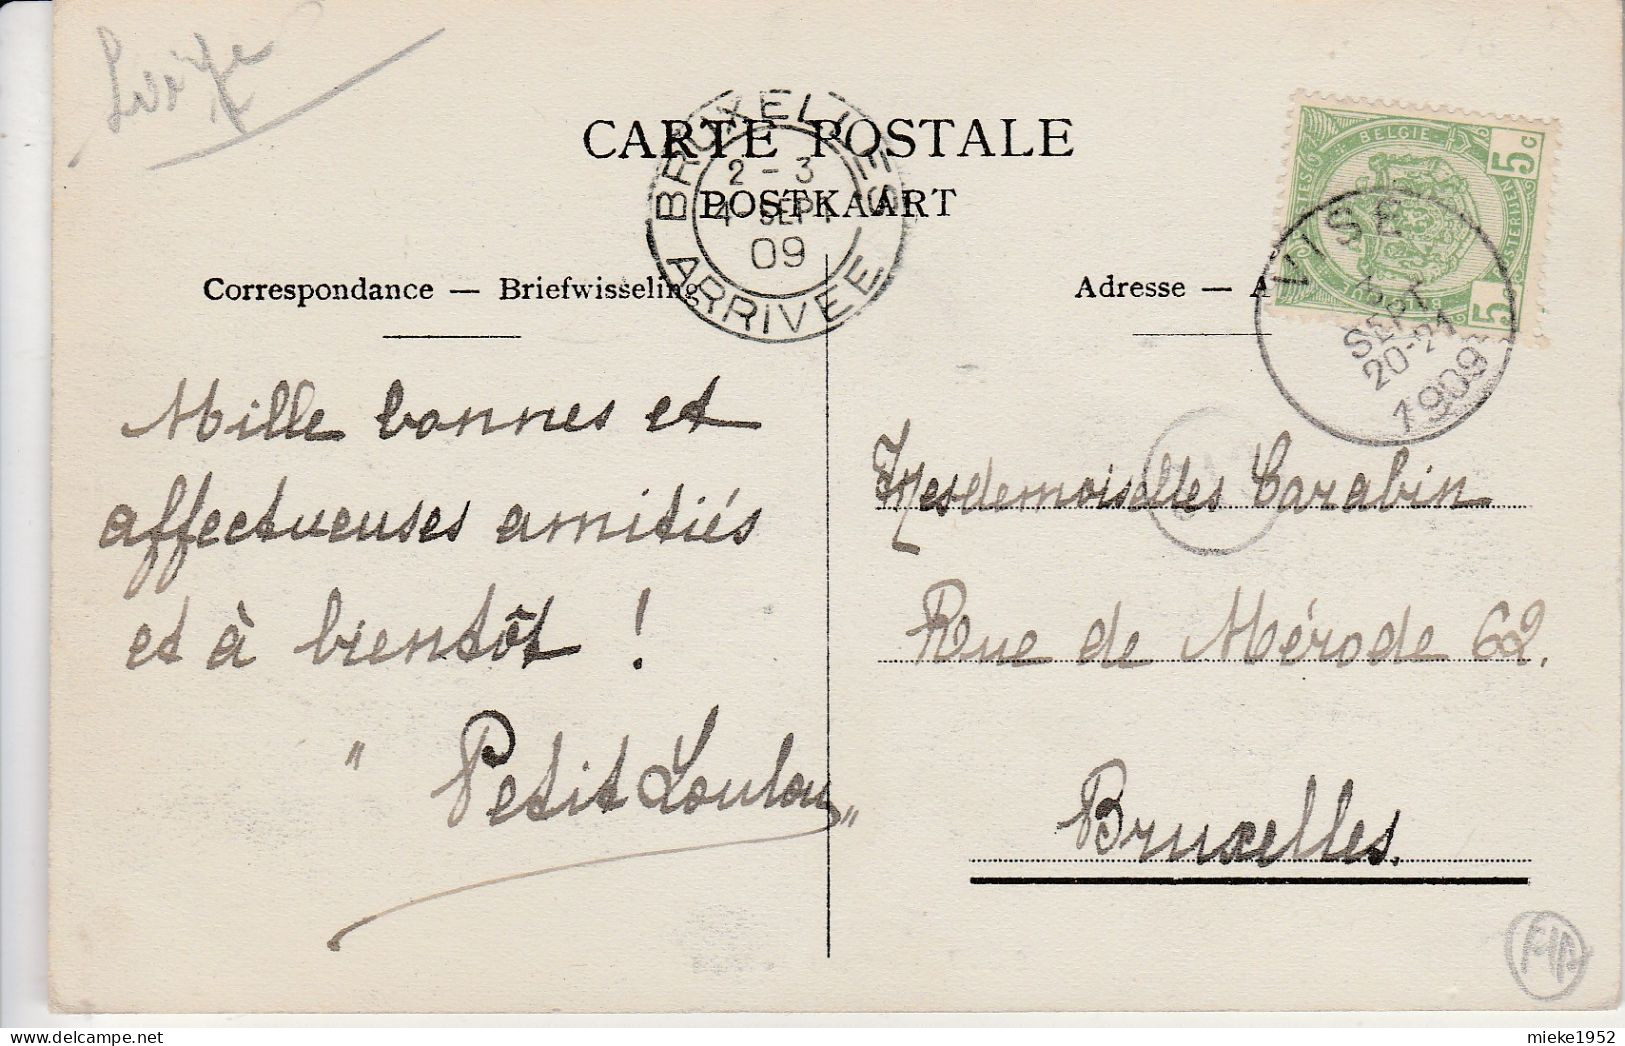 CARTE POSTALE
POSTKAART
BRUXELLES
2 - 3
4 SEPT
09
ARRIVEE
BELGIE
5c
5c
VISE
SEPT
20-21
1909
Correspondance — Briefwisseling
Adresse — A
Mille bonnes et
affectueuses amitiés
et à bientôt !
" Petit Loulou "
Mesdemoiselles Carabin
Rue de Mérode 62.
Bruxelles.
mieke1952